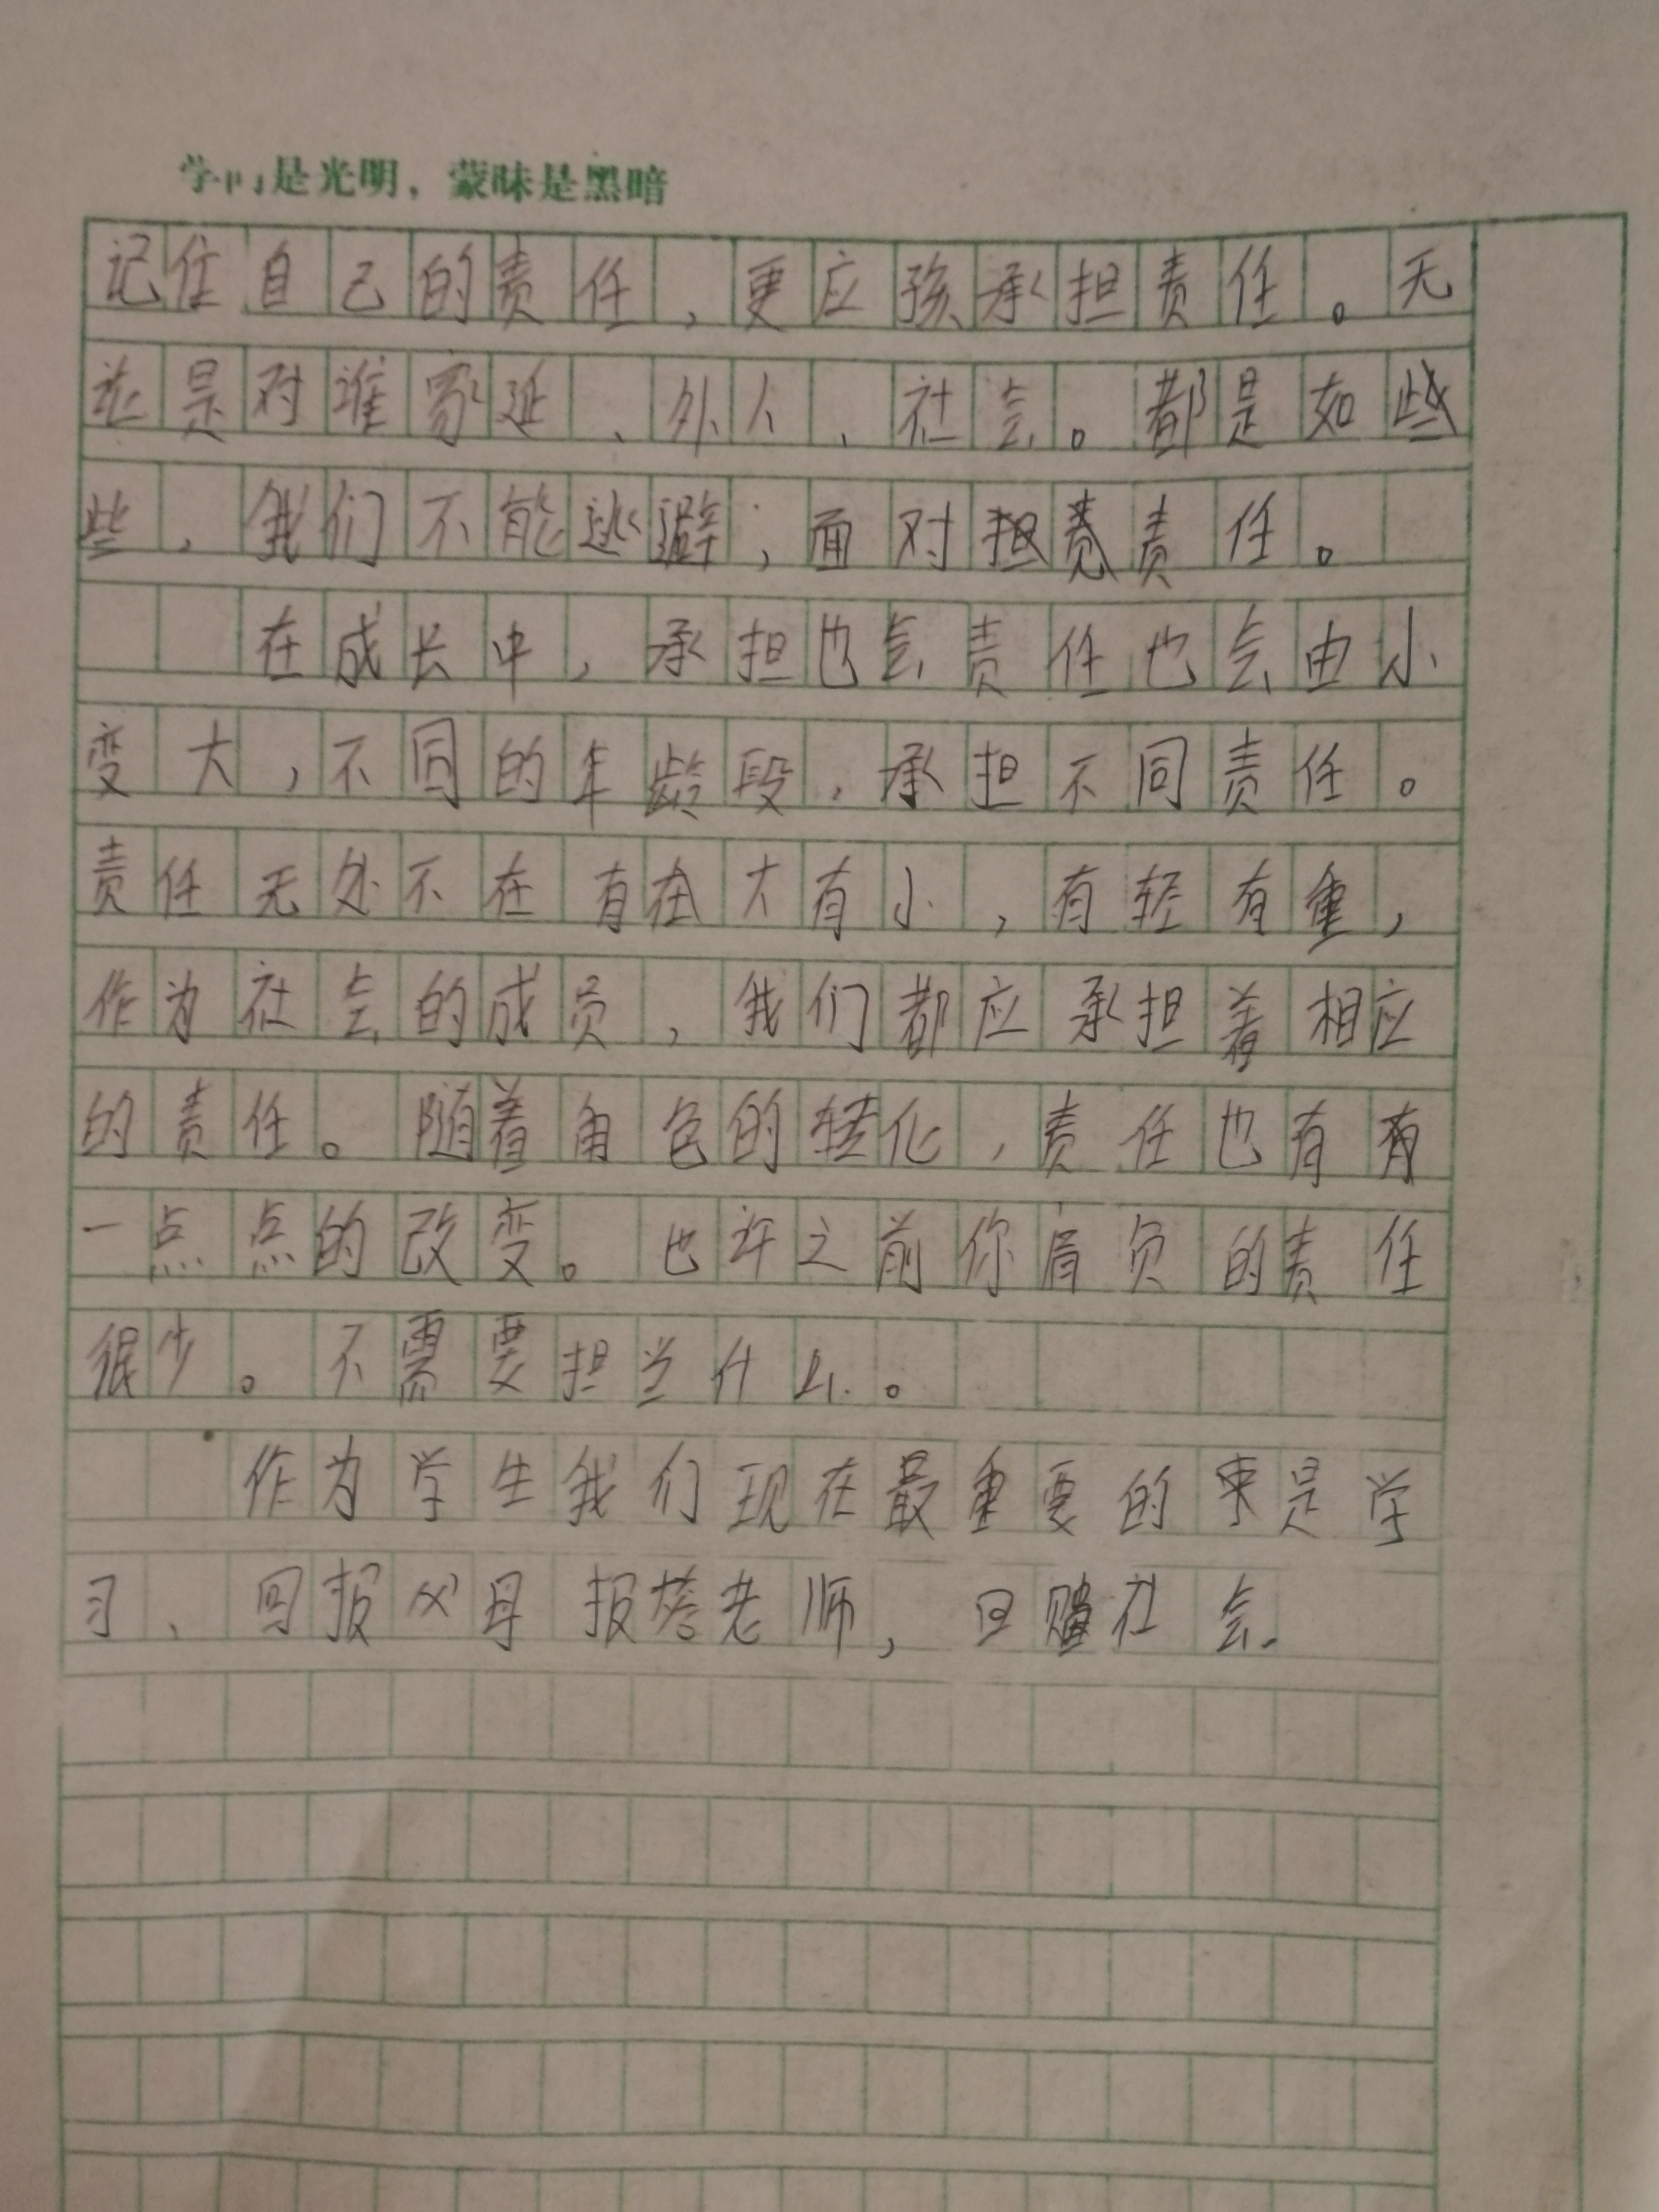 学 是光明，蒙昧是黑暗
记住自己的责任，更应孩承担责任。无
是对谁家延、外人、社会。都是如
些，我们不能逃避，面对担责任。
在成长中，承担也会责任也会由小
变大，不同的年龄段，承担不同责任。
责任无处不在有在大有小，有轻有重，
作为社会的成员，我们都应承担着相应
的责任。随着角色的转化，责任也有有
一点点的改变。也许之前你肩负的责任
很少。不需要担当什么。
作为学生我们现在最重要的 是学
习、回报父母报答老师，回 社会.